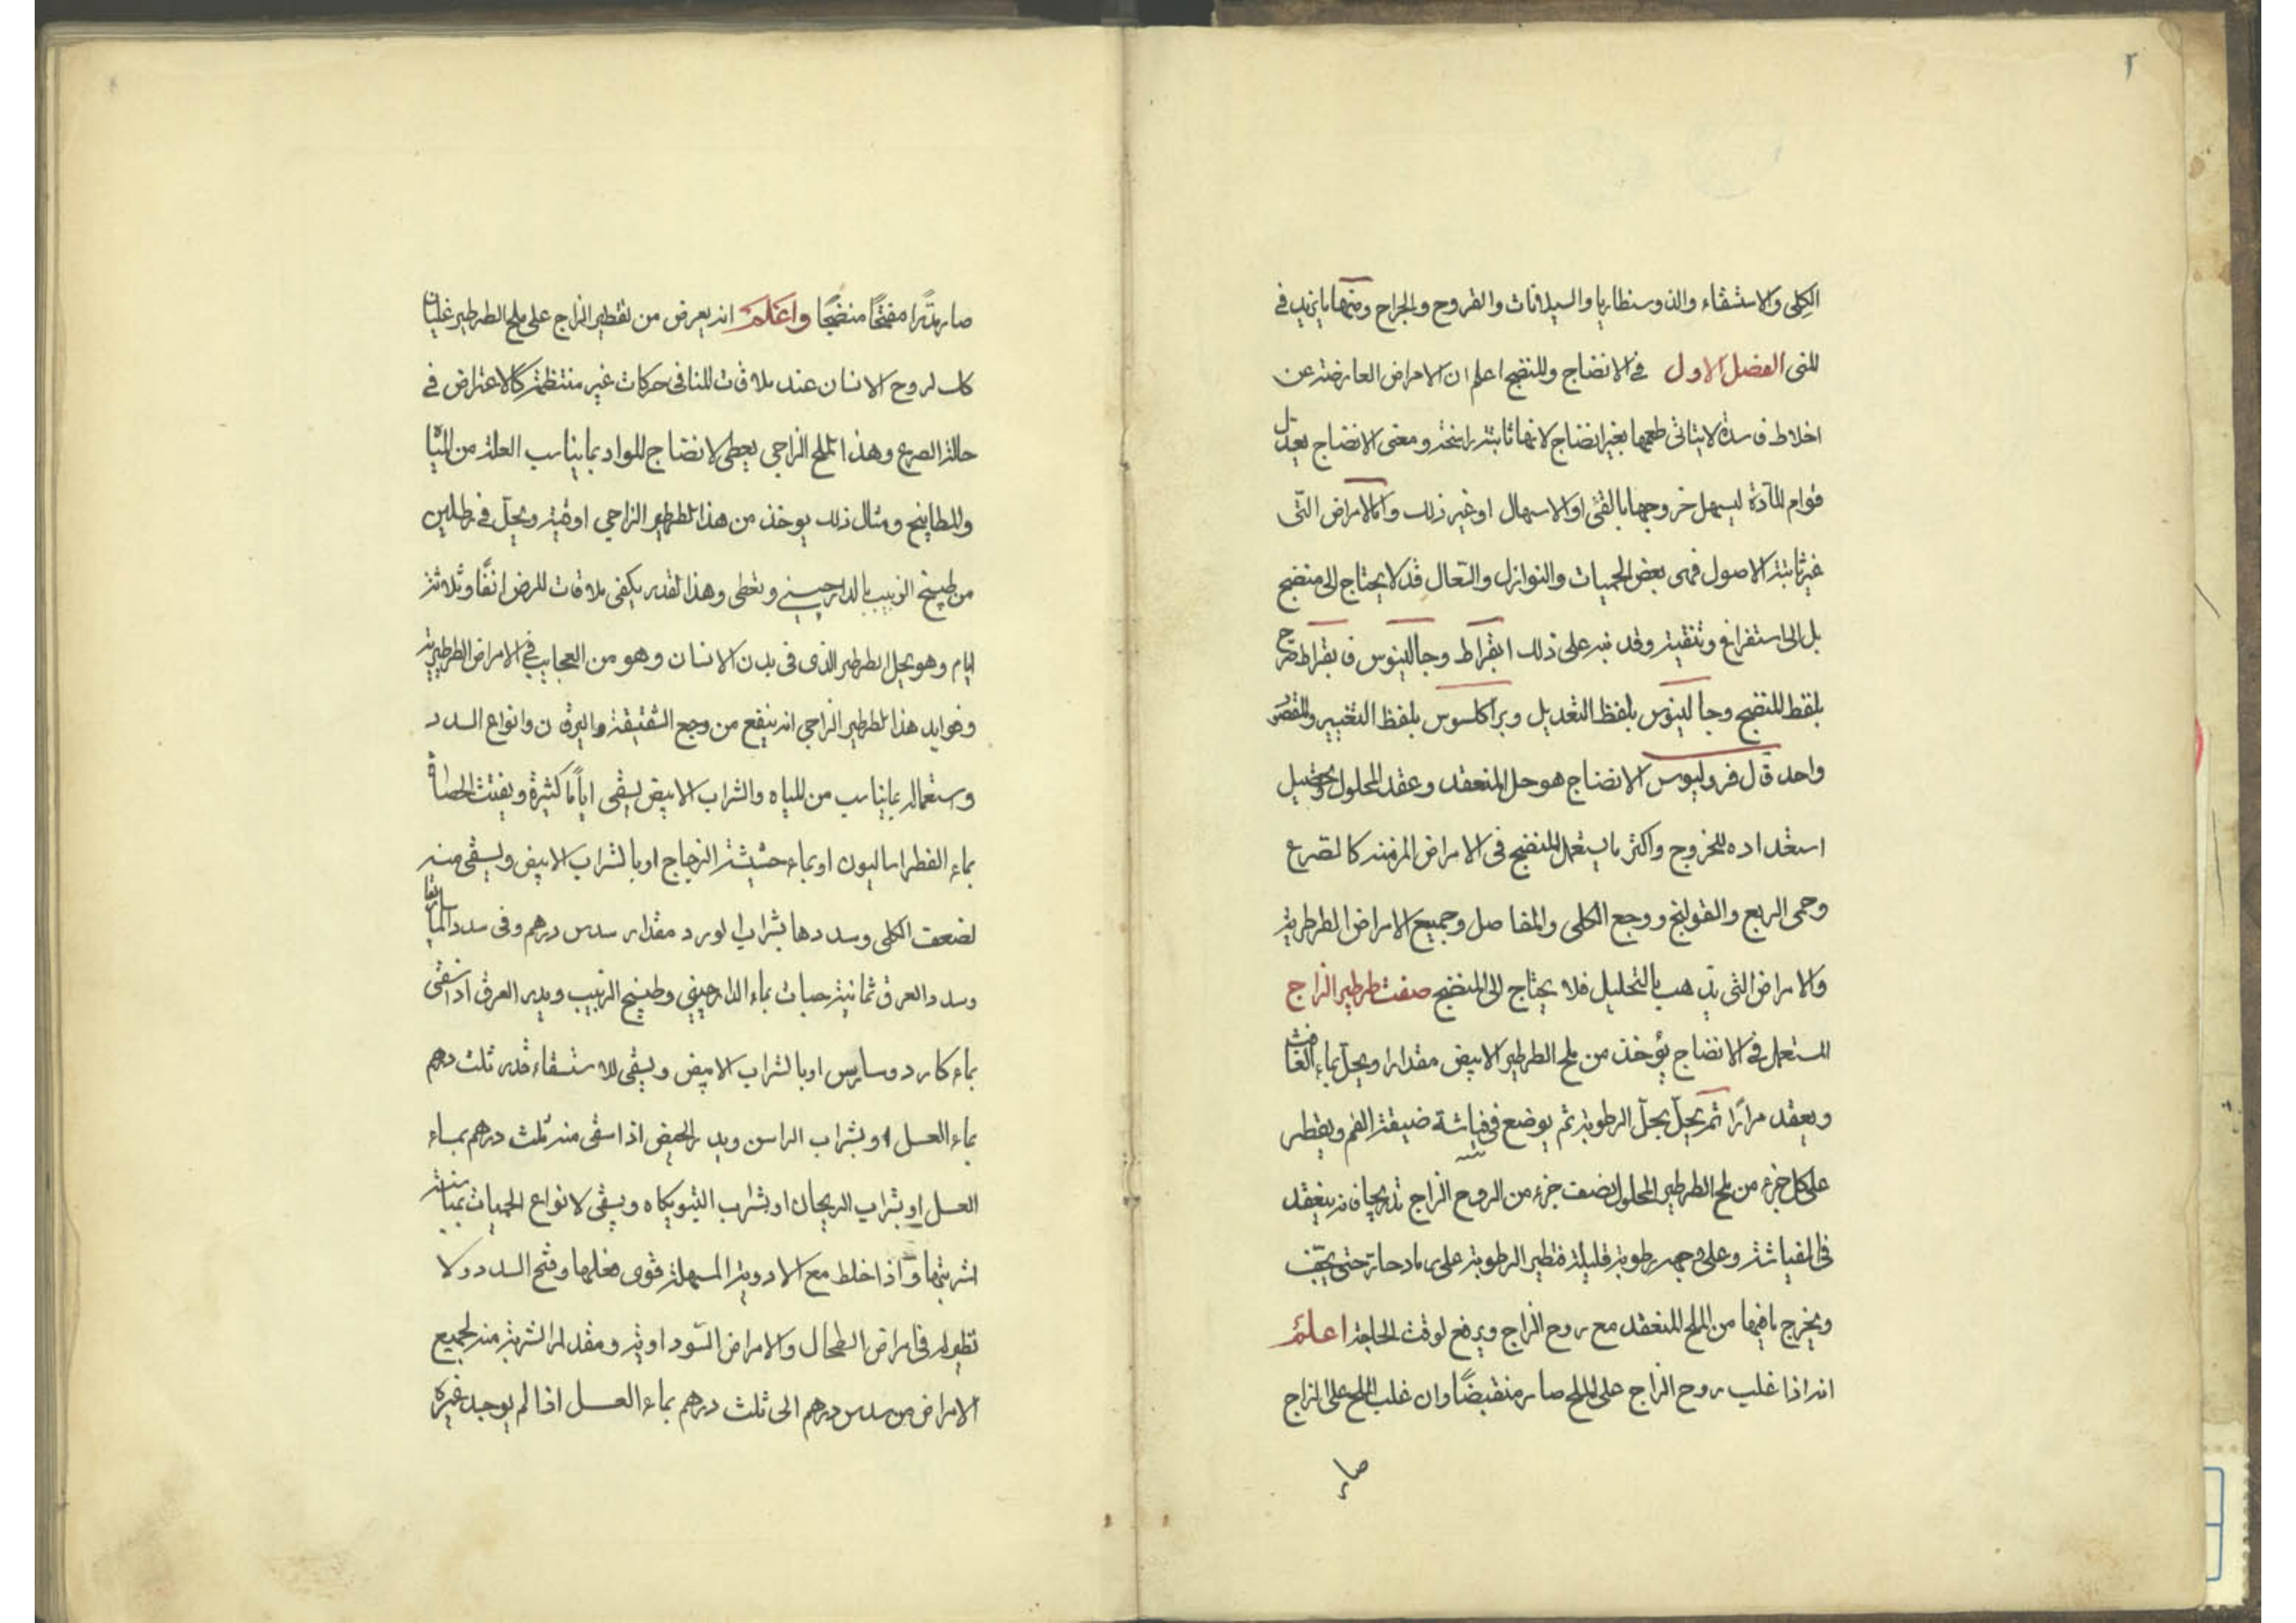 ٢
الكلى والاستسقاء والذوسنطاريا والسيلانات والقروح والجراح ومنها ما يزيد في
المنى الفصل الاول في الانضاج والمنضج اعلم ان الامراض العارضة عن
اخلاط فاسدة لا يتاتى بغير انضاج لانها ثابتة راسخة ومعنى الانضاج تعديل
قوام المادة ليسهل خروجها بالقئ او الاسهال او غير ذلك واما الامراض التى
غير ثابتة الاصول فهى بعض الحميات والنوازل والسعال قد لا يحتاج الى منضج
بل الى استفراغ وتنقية وقد نبه على ذلك ابقراط وجالينوس فابقراط صرح
بلفظ المنضج وجالينوس بلفظ التعديل وبراكلسوس بلفظ التغيير والمقصود
واحد قال فروليوس الانضاج هو حل المنعقد وعقد المحلول وتحصيل
استعداده للخروج واكثر ما يستعمل المنضج فى الامراض المزمنة كالصرع
وحمى الربع والقولنج ووجع الكلى والمفاصل وجميع الامراض الطرطرية
والامراض التى تذهب بالتحليل فلا يحتاج الى المنضج صفت طرطير الزاج
المستعمل فى الانضاج يؤخذ من ملح الطرطير الابيض مقدارا ويحل بماء الغافث
ويعقد مرارًا ثم يحل بحل الرطوبة ثم يوضع فى فياشة ضيقة الفم ويقطر
على كل جزء من ملح الطرطير المحلول نصف جزء من الروح الزاج تدريجا فانه ينعقد
فى الفياشة وعلى وجهه رطوبة قليلة فتطير الرطوبة على رماد حار حتى يجف
ويخرج ما فيها من الملح المنعقد مع روح الزاج ويرفع لوقت الحاجة اعلم
انه اذا غلب روح الزاج على الملح صار منقبضًا وان غلب الملح على الزاج
صار
صار مفتحًا منضجًا واعلم انه يعرض من تقطير الزاج على ملح الطرطير غليان
كما لروح الانسان عند ملاقات المنافى حركات غير منتظمة كالاعتراض فى
حالة الصرع وهذا الملح الزاجى يعطى لانضاج المواد بما يناسب العلة من المياه
والمطابيخ ومثال ذلك يوخذ من هذا الطرطير الزاجى اوقية ويحل فى رطلين
من طبيخ الزبيب بالدارچينى وتعطى وهذا القدر يكفى ملاقات المرض وثلاثة
ايام وهو يحل الطرطير الذى فى بدن الانسان وهو من العجايب فى الامراض الطرطيرية
وفوايد هذا الطرطير الزاجى انه ينفع من وجع الشقيقة واليرقان وانواع السدد
وستعماله بما يناسب من المياه والشراب الابيض يسقى ايامًا كثيرة ويفتت الحصاة
بماء الفطراساليون او بماء حشيشة الزجاج او بالشراب الابيض ويسقى منه
لضعف الكلى وسددها بشراب الورد مقدار سدس درهم وفى سدد الماساريقا
وسدد العرق ثمانية حبات بماء الدارچينى وطبيخ الزبيب ويدر العرق اذا سقى
بماء كاردوساريس او بالشراب الابيض ويسقى للاستسقاء قدر ثلث درهم
بماء العسل او بشراب الراسن ويدر الحيض اذا سقى منه ثلث درهم بماء
العسل او بشراب الريحان او بشراب ويسقى لانواع الحميات بمياه
اشربتها واذا خلط مع الادوية المسهلة قوى فعلها وفتح السدد ولا
نظير له فى امراض الطحال والامراض السوداوية ومقدار الشربة منه لجميع
الامراض من سدس درهم الى ثلث درهم بماء العسل اذا لم يوجد غيره